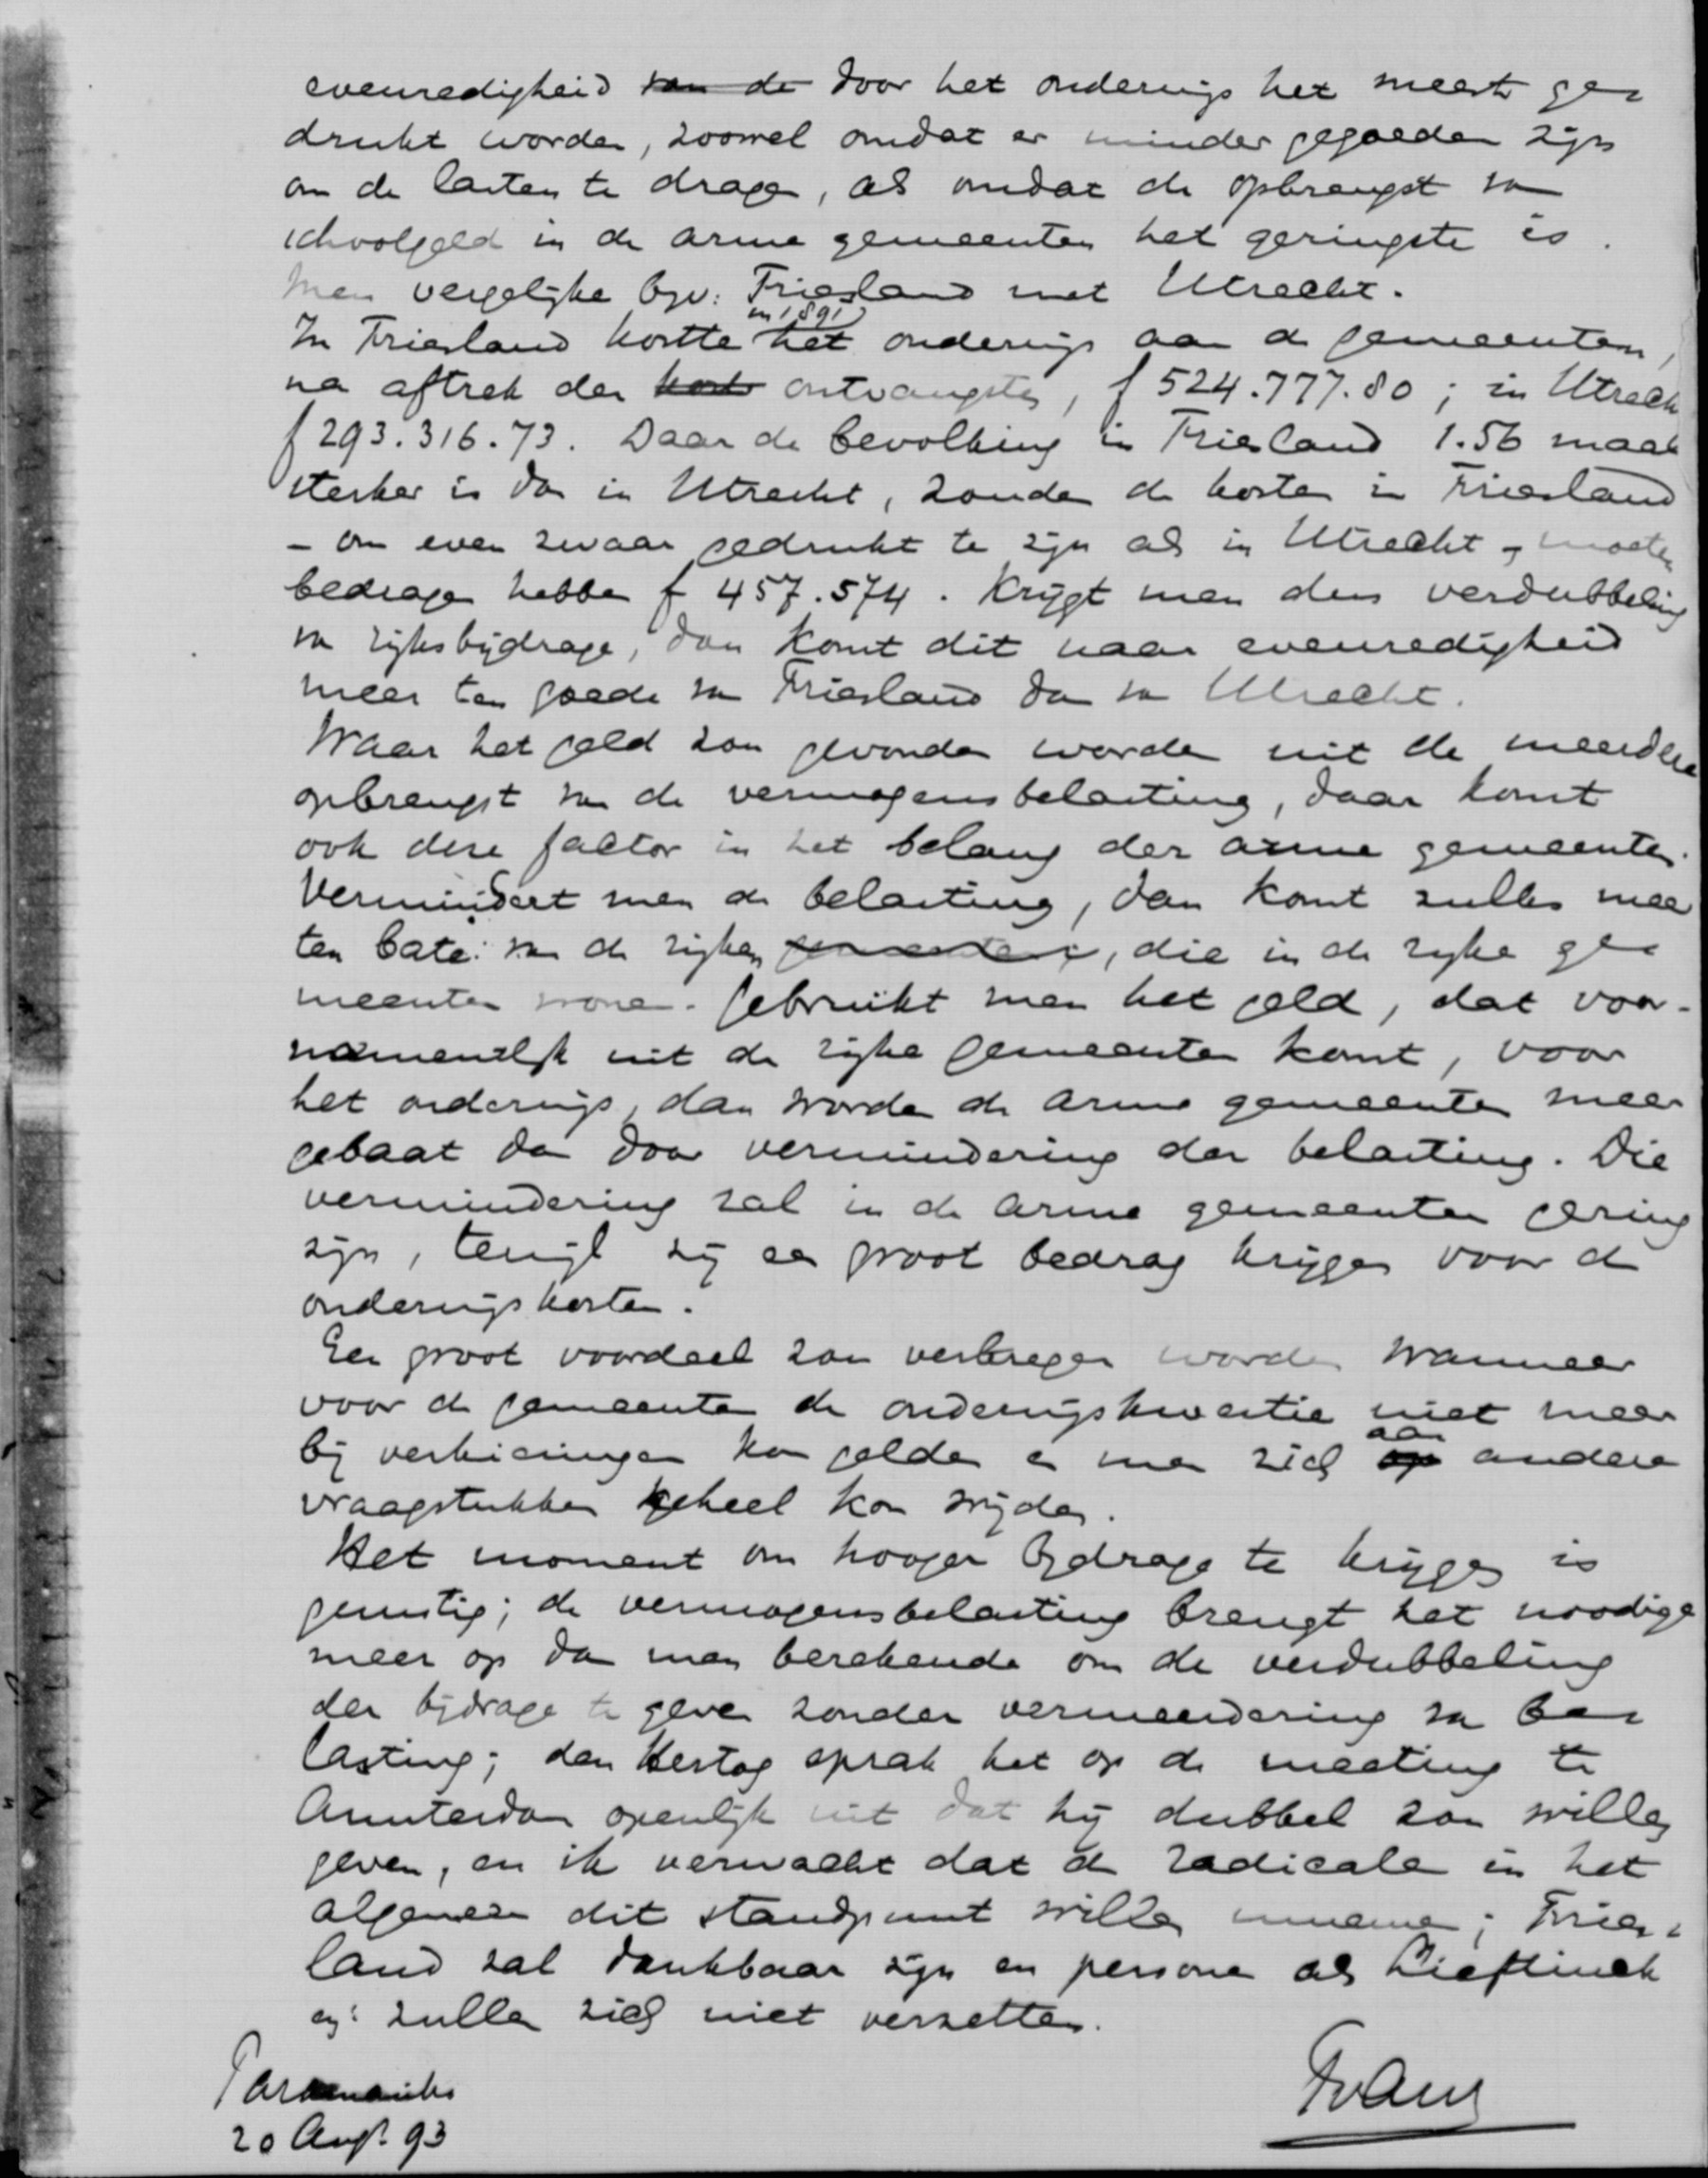 evenredigheid van de door het onderwijs het meest ge-
drukt worden, zoowel omdat er minder gegoeden zijn
om de lasten te dragen, als omdat de opbrengst van
schoolgeld in de arme gemeenten het geringste is.
Men vergelijke bijv: Friesland met Utrecht.
in 1891
In Friesland kostte het onderwijs aan de gemeenten,
na aftrek der ontvangsten, f 524.777.80; in Utrecht
f 293.316.73. Daar de bevolking in Friesland 1.56 maal
sterker is dan in Utrecht, zouden de kosten in Friesland
- om even zwaar gedrukt te zijn als in Utrecht - moeten
bedragen hebben f 457.574. Krijgt men dus verdubbeling
van rijksbijdrage, dan komt dit naar evenredigheid
meer ten goede van Friesland dan van Utrecht.
Waar het geld zou gevonden worden uit de meerdere
opbrengst van de vermogensbelasting, daar komt
ook deze factor in het belang der arme gemeenten.
Vermindert men de belasting, dan komt zulks meer
ten bate van de rijken gemeenten, die in de rijke ge-
meenten wonen. Gebruikt men het geld, dat voor-
namentlijk uit de rijke gemeenten komt, voor
het onderwijs, dan worden de arme gemeenten meer
gebaat dan door vermindering der belasting. Die
vermindering zal in de arme gemeenten gering
zijn, terwijl zij een groot bedrag krijgen voor de
onderwijskosten.
Een groot voordeel zou verkregen worden wanneer
voor de gemeenten de onderwijskwestie niet meer
aan
bij verkiezingen kon gelden en men zich op andere
vraagstukken geheel kon wijden.
Het moment om hooger bijdrage te krijgen is
gunstig; de vermogensbelasting brengt het noodige
meer op dan men berekende om de verdubbeling
der bijdrage te geven zonder vermeerdering van be-
lasting; den Hertog sprak het op de meeting te
Amsterdam openlijk uit dat hij dubbel zou willen
geven, en ik verwacht dat de radicalen in het
algemeen dit standpunt willen innemen; Fries-
land zal dankbaar zijn en personen als Lieftinck
zullen zich niet verzetten.
20 Aug. 93
Frans